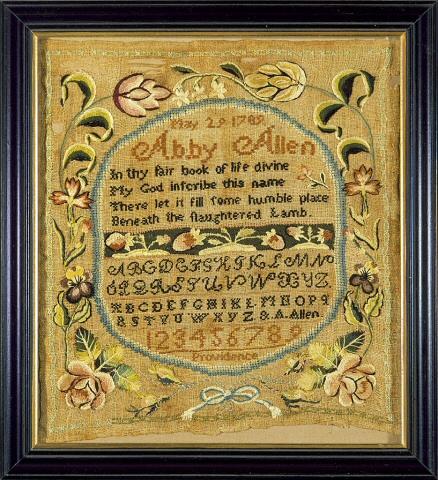 May 29 1789
Abby Allen
In thy fair book of life divine
My God inſcribe this name
There let it fill ſome humble place
Beneath the ſlaughtered Lamb.
ABCDEFGHIKLMN
OPQRSTUVWXYZ.
ABCDEFGHIKLMNOPQ
RSTVUWXYZ&.A.Allen.
123456789
Providence